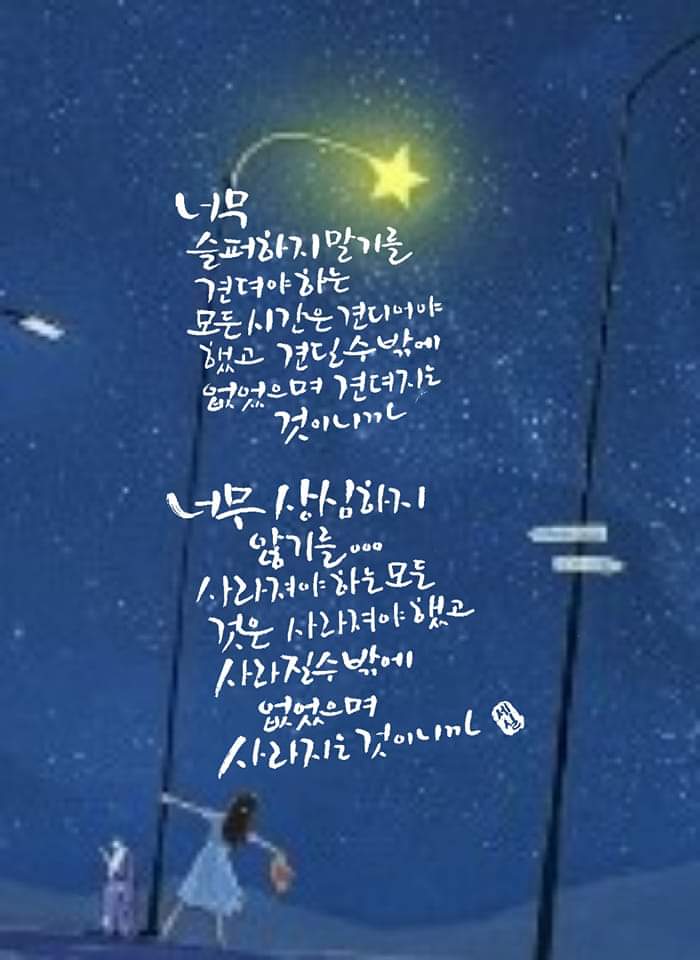 너무
슬퍼하지 말기를
견뎌야 하는
모든 시간은 견디어야
했고 견딜 수 밖에
없었으며 견뎌지는
것이니까
너무 상심하지
않기를...
사라져야 하는 모든
것은 사라져야 했고
사라질 수 밖에
없었으며
사라지는 것이니까